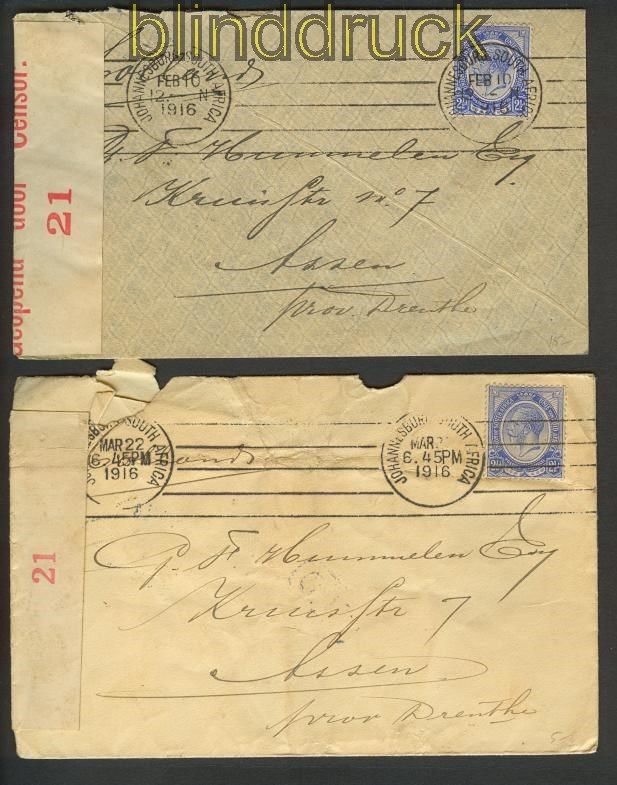 blinddruck
JOHANNESBURG SOUTH AFRICA
FEB 10
12. N
1916
JOHANNESBURG SOUTH AFRICA
FEB 10
Geopend door Censor.
21
Hummelen Esq.
Kruisstr no. 7
Assen
prov Drenthe
15-
JOHANNESBURG SOUTH AFRICA
MAR 22
6. 45PM
1916
JOHANNESBURG SOUTH AFRICA
MAR
6. 45PM
1916
21
2½
P. F. Hummelen Esq
Kruisstr 7
Assen
prov Drenthe
5-